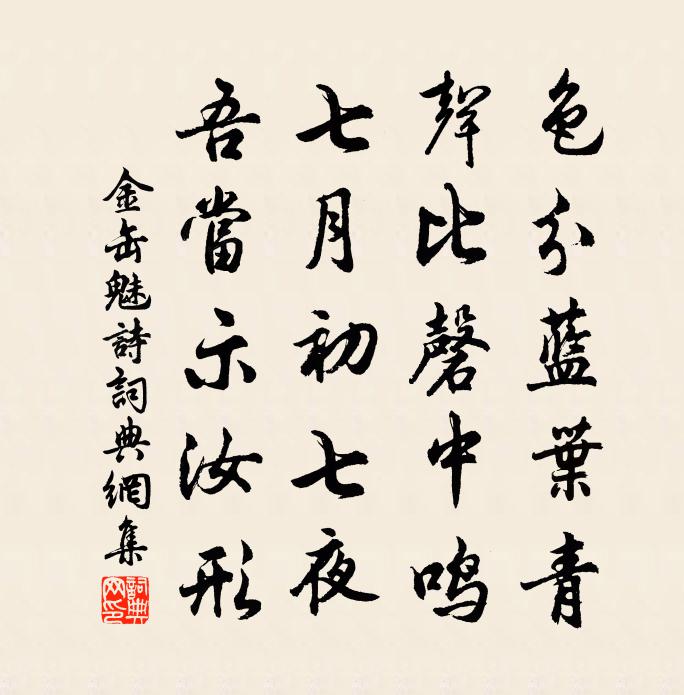 色分藍葉青
聲比磬中鳴
七月初七夜
吾當示汝形
金缶魅詩詞典網集
詞典網印